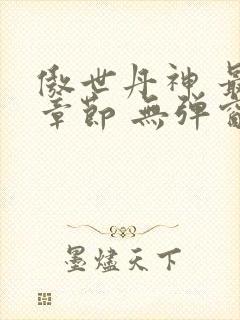 傲世丹神 最
章節 無彈窗
墨燼天下